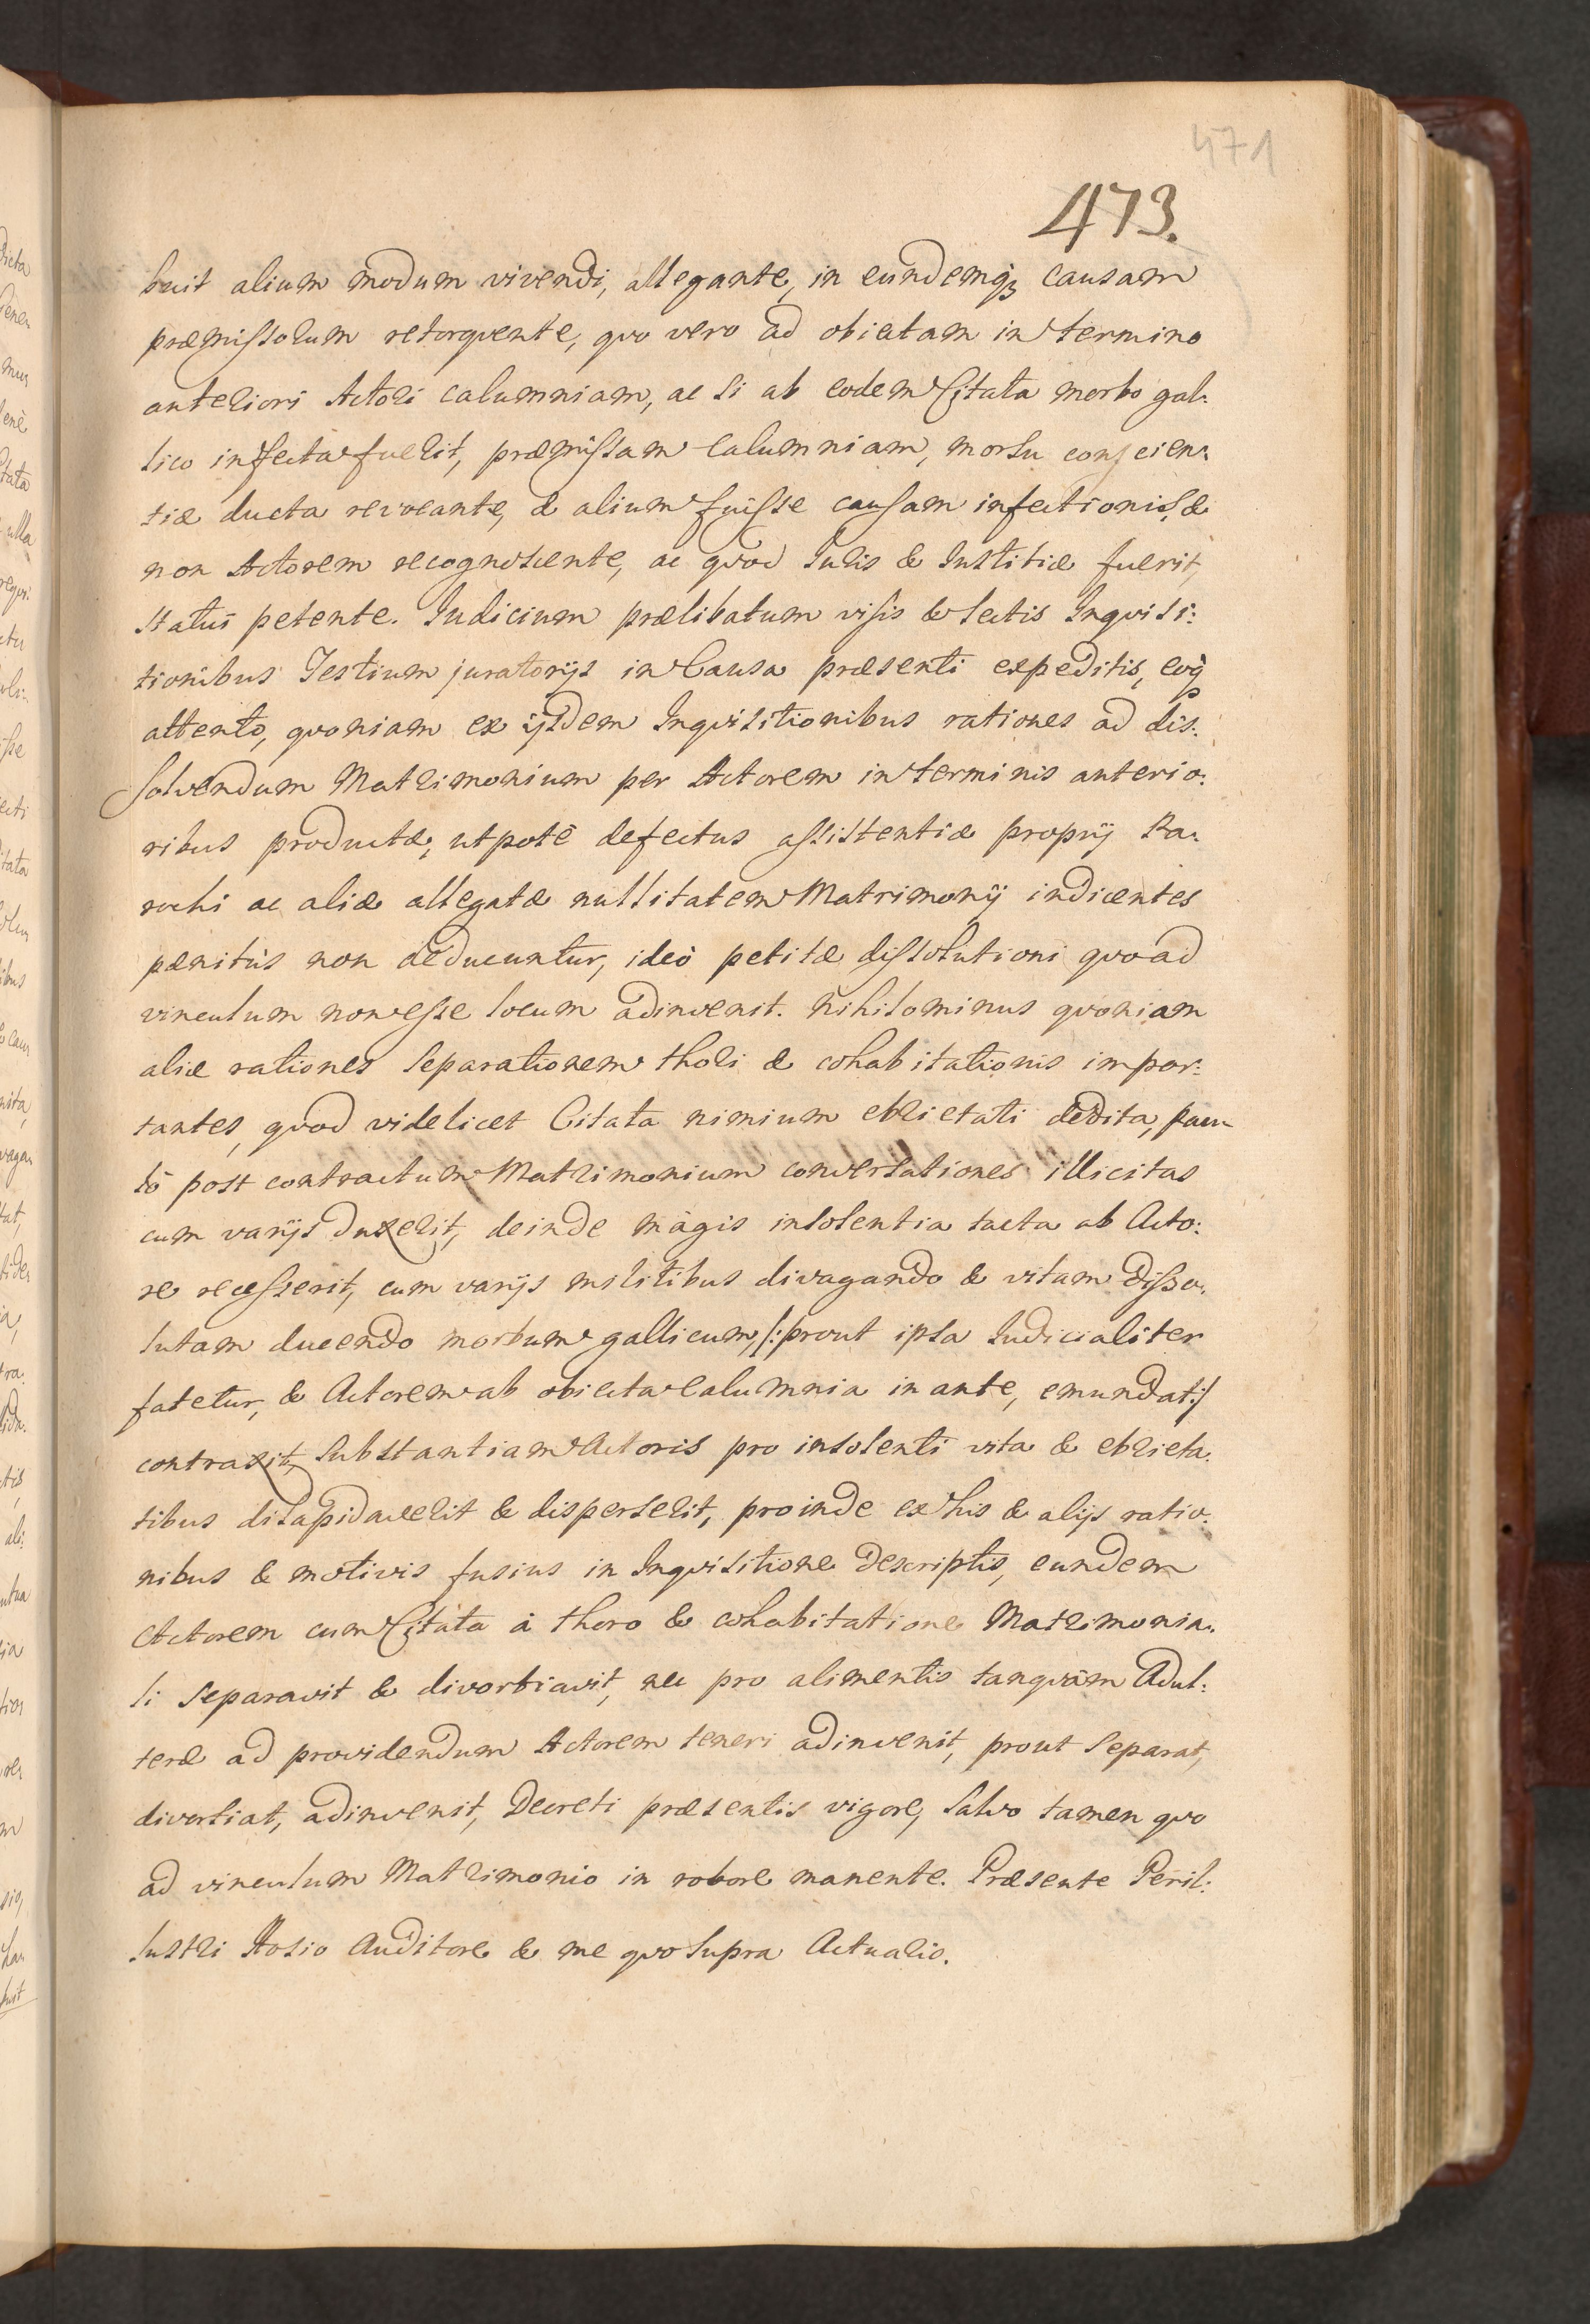 471
473.
buit alium modum vivendi, allegante, in eundemq₃ causam
præmissorum retorqvente, qvo vero ad obiectam in termino
anteriori Actori calumniam, ac si ab eodem Citata morbo gal:
lico infecta fuerit, præmissam calumniam, morsu conscien:
tiæ ducta revocante, & alium fuisse causam infectionis, &
non Actorem recognoscente, ac qvod Iuris & Iustitiæ fuerit,
statui petente. Iudicium prælibatum visis & lectis Inqvisi:
tionibus Testium juratorijs in Causa præsenti expeditis, eoq̀
attento, qvoniam ex ijsdem Inqvisitionibus rationes ad dis:
solvendum Matrimonium per Actorem in terminis anterio:
ribus productæ, utpotè defectus assistentiæ proprij Pa:
rochi ac aliæ allegatæ nullitatem Matrimonij indicentes
pænitùs non deducuntur, ideò petitæ dissolutioni qvoad
vinculum non esse locum adinvenit. Nihilominus qvoniam
aliæ rationes separationem thori & cohabitationis impor:
tantes, qvod videlicet Citata nimium ebrietati dedita, pau:
lò post contractum Matrimonium conversationes illicitas
cum varijs duxerit, deinde màgis insolentia tacta ab Acto:
re recesserit, cum varijs militibus divagando & vitam disso:
lutam ducendo morbum gallicum, /:prout ipsa Iudicialiter
fatetur, & Actorem ab obiecta calumnia in ante, emundat:/
contraxit, substantiam Actoris pro insolenti vita & ebrieta:
tibus dilapidaverit & disperserit, proinde ex his & alijs ratio:
nibus & motivis fusius in Inqvisitione descriptis, eundem
Actorem cum Citata à thoro & cohabitatione Matrimonia:
li separavit & divortiavit, nec pro alimentis tanqvàm Adul:
teræ ad providendum Actorem teneri adinvenit, prout separat,
divortiat, adinvenit, Decreti præsentis vigore, salvo tamen qvo
ad vinculum Matrimonio in robore manente. Præsente Peril:
lustri Hosio Auditore & me qvo supra Actuario.